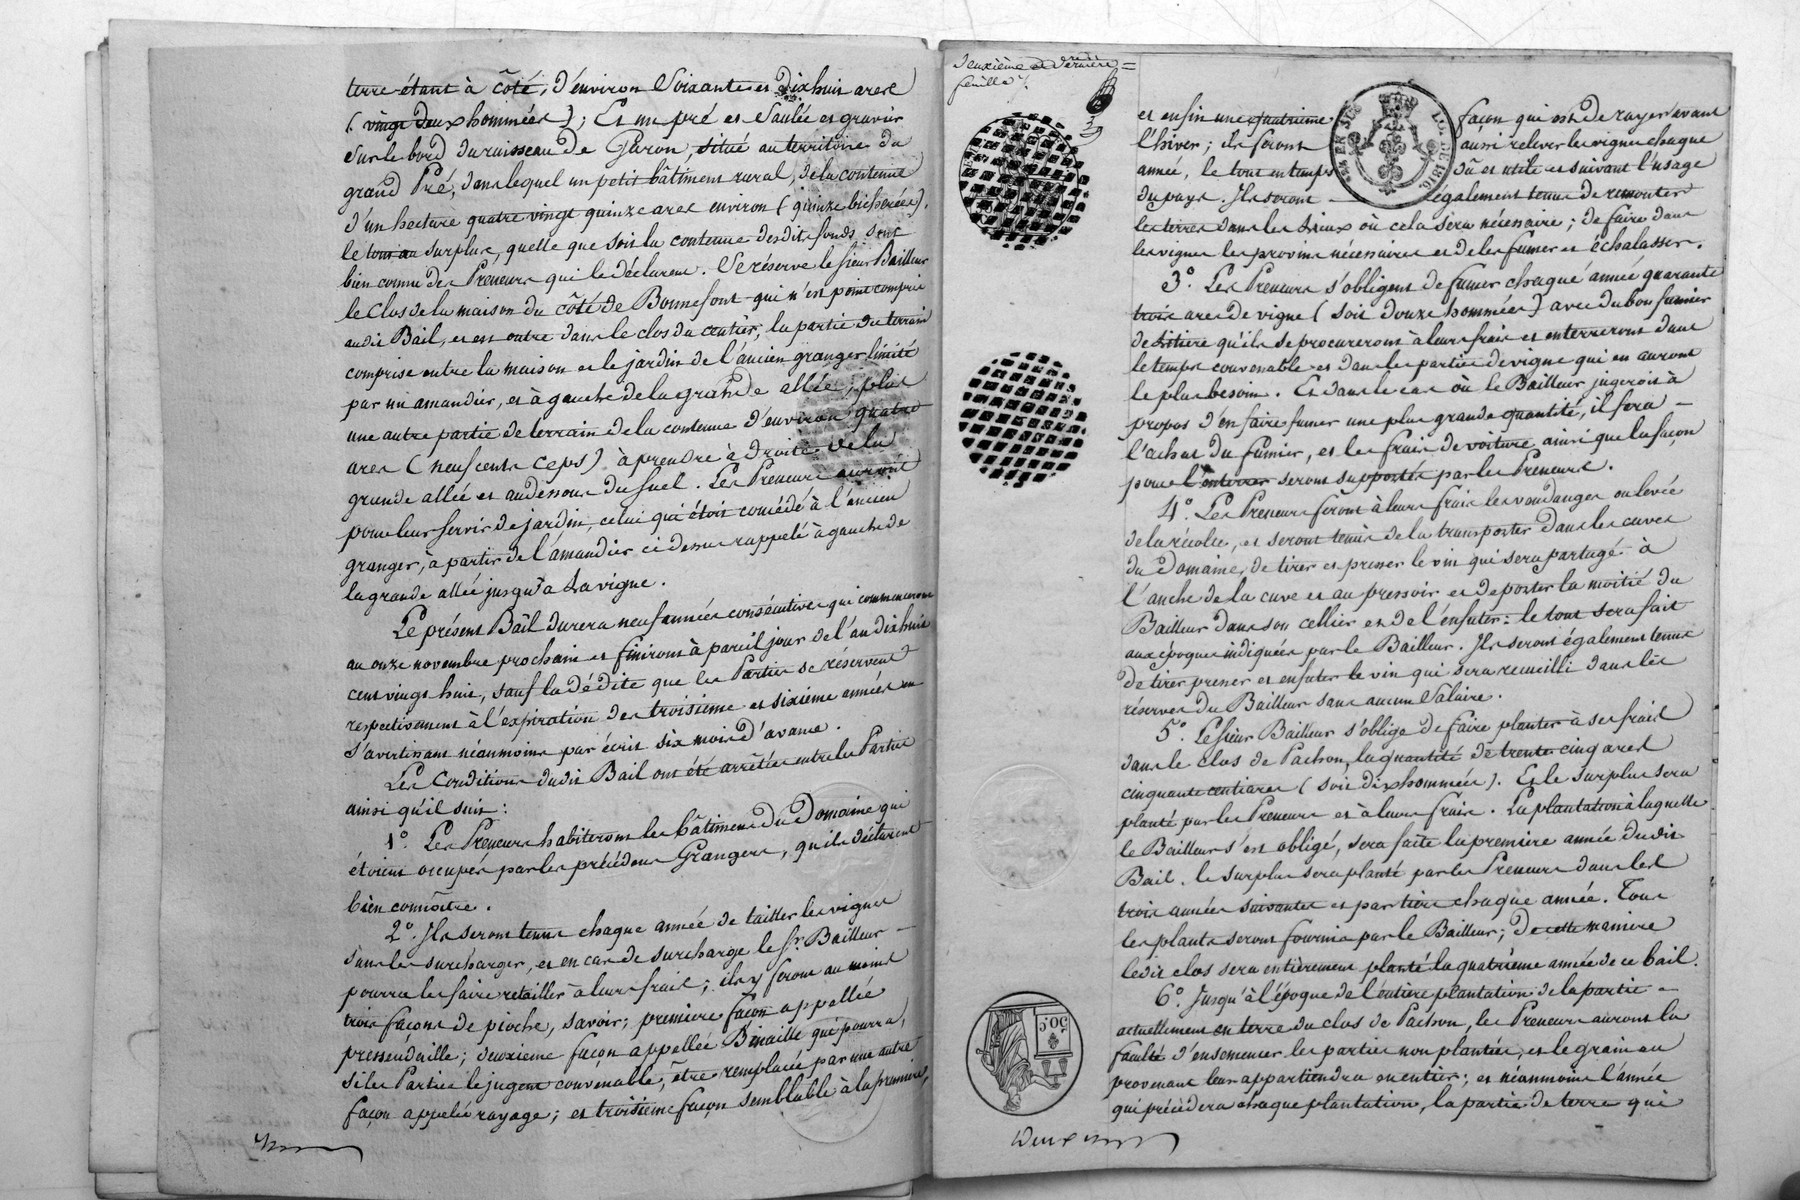 terre étant à côté, d'environ Soixante et dix huit ares
(vingt deux hommées); Et un pré et Saulée et gravier
Sur le bord du ruisseau de Garon, situé au territoire du
grand Pré, dans lequel un petit bâtiment rural, de la contenue
d'un hectare quatre vingt quinze ares environ (quinze bicherées).
le tout au surplus, quelle que soit la contenue desdits fonds sont
bien connus des Preneurs qui le déclarent. Se réserve le sieur Bailleur
le Clos de la maison du côté de Bonnefont qui n'est point compris
audit Bail, et est outre dans le clos du centier, la partie du terrain
comprise entre la maison et le jardin de l'ancien granger limité
par un amandier, et à gauche de la grande allée; plus
une autre partie de terrain de la contenue d'environ quatre
ares (neuf cents ceps) à prendre à droite de la
grande allée et au dessous du suel. Les Preneurs auront
pour leur servir de jardin, celui qui étoit concédé à l'ancien
granger, à partir de l'amandier ci dessus rappelé à gauche de
la grande allée jusqu'à la vigne.
Le présent Bail durera neuf années consécutives qui commenceront
au onze novembre prochain et finiront à pareil jour de l'an dix huit
cent vingt huit, sauf la dédite que les Parties se réservent
respectivement à l'expiration des troisieme et sixième années en
s'avertissant néanmoins par écrit six mois d'avance.
Les Conditions dudit Bail ont été arrêtées entre les Parties
ainsi qu'il suit:
1°. Les Preneurs habiteront les bâtiments du Domaine qui
étoient occupés par les précédens Grangers, qu'ils déclarent
bien connoître.
2°. Ils seront tenus chaque année de tailler les vignes
sans les surcharger, et en cas de surcharge le Sr. Bailleur
pourra les faire retailler à leurs frais; ils y feront au moins
trois façons de pioche, savoir; premiere façon appellée
; deuxieme façon appellée Binaille qui pourra,
si les Parties le jugent convenable, être remplacée par une autre
façon appelée rayage; et troisieme façon semblable à la premiere,
Deuxième et dernière
feuille /.
et enfin une quatrieme façon qui est de rayer avant
l'hiver; ils feront aussi relever les vignes chaque
année, le tout en temps dû et utile et suivant l'usage
du pays. Ils seront également tenus de remonter
les terres dans les Lieux où cela sera nécessaire; de faire dans
les vignes les provins nécessaires et de les fumer et échalasser.
3°. Les Preneurs s'obligent de fumer chaque année quarante
trois ares de vigne (soit douze hommées) avec du bon fumier
de litiere qu'ils se procureront à leurs frais et enterreront dans
le temps convenable et dans les parties de vigne qui en auront
le plus besoin. Et dans le cas où le Bailleur jugeroit à
propos d'en faire fumer une plus grande quantité, il fera
l'achat du fumier, et les frais de voiture ainsi que la façon
pour l'enterrer seront supportés par les Preneurs.
4°. Les Preneurs feront à leurs frais les vendanges ou levée
de la récolte, et seront tenus de la transporter dans les cuves
du Domaine, de tirer et presser le vin qui sera partagé à
l'anche de la cuve et au pressoir et de porter la moitié du
Bailleur dans son cellier et de l'enfuter: le tout sera fait
aux époques indiquées par le Bailleur. Ils seront également tenus
de tirer presser et enfuter le vin qui sera recueilli dans les
réserves du Bailleur sans aucun Salaire.
5°. Le sieur Bailleur s'oblige de faire planter à ses frais
dans le clos de Pachon, la quantité de trente cinq ares
cinquante centiares (soit dix hommées). Et le surplus sera
planté par les Preneurs et à leurs frais. La plantation à laquelle
le Bailleur s'est obligé, sera faite la premiere année dudit
Bail. le surplus sera planté par les Preneurs dans les
trois années suivantes et par tiers chaque année. Tous
les plants seront fournis par le Bailleur; de cette maniere
ledit clos sera entièrement planté la quatrieme année de ce bail.
6°. Jusqu'à l'époque de l'entiere plantation de la partie
actuellement en terre du clos de Pachon, les Preneurs auront la
faculté d'ensemencer les parties non plantées, et le grain en
provenant leur appartiendra en entier; et néanmoins l'année
qui précédera chaque plantation, la partie de terre qui
50C.